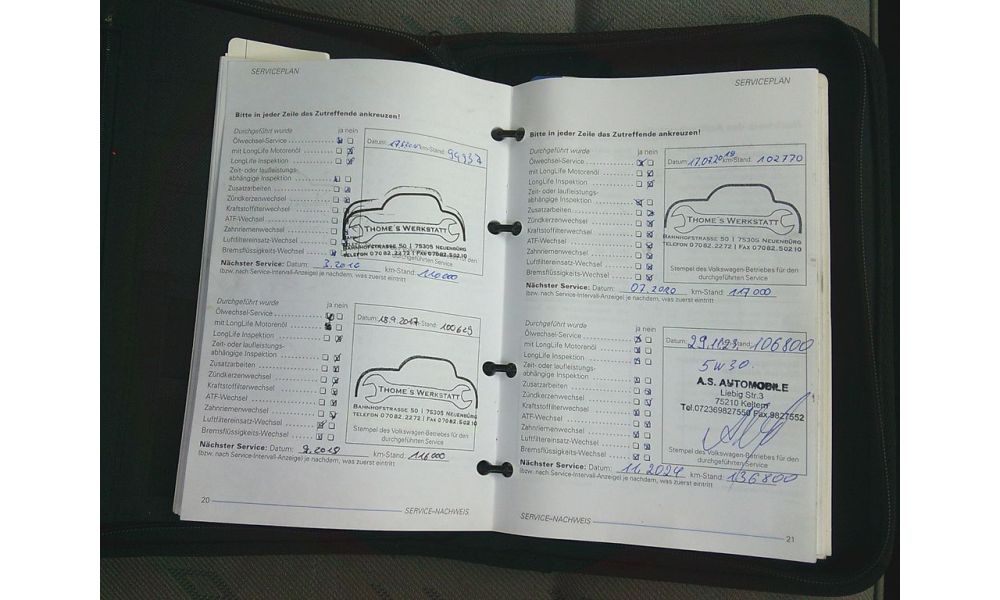 SERVICEPLAN
Bitte in jeder Zeile das Zutreffende ankreuzen!
Durchgeführt wurde ja nein
Ölwechsel-Service
mit LongLife Motorenöl
LongLife Inspektion
Zeit- oder laufleistungs-
abhängige Inspektion
Zusatzarbeiten
Zündkerzenwechsel
Kraftstofffilterwechsel
ATF-Wechsel
Zahnriemenwechsel
Luftfiltereinsatz-Wechsel
Bremsflüssigkeits-Wechsel
Datum: km-Stand: 94937
THOME´S WERKSTATT
BAHNHOFSTRASSE 50 | 75305 NEUENBÜRG
TELEFON 07082.2272 | FAX 07082.50210
durchgeführten Service
Nächster Service: Datum: 3.2016 km-Stand: 110000
(bzw. nach Service-Intervall-Anzeige) je nachdem, was zuerst eintritt
Durchgeführt wurde ja nein
Ölwechsel-Service
mit LongLife Motorenöl
LongLife Inspektion
Zeit- oder laufleistungs-
abhängige Inspektion
Zusatzarbeiten
Zündkerzenwechsel
Kraftstofffilterwechsel
ATF-Wechsel
Zahnriemenwechsel
Luftfiltereinsatz-Wechsel
Bremsflüssigkeits-Wechsel
Datum: 18.9.2017 -Stand: 100629
THOME´S WERKSTATT
BAHNHOFSTRASSE 50 | 75305 NEUENBÜRG
TELEFON 07082.2272 | FAX 07082.50210
Stempel des Volkswagen-Betriebes für den
durchgeführten Service
Nächster Service: Datum: 9.2018 km-Stand: 116000
(bzw. nach Service-Intervall-Anzeige) je nachdem, was zuerst eintritt
20 SERVICE–NACHWEIS
SERVICEPLAN
Bitte in jeder Zeile das Zutreffende ankreuzen!
Durchgeführt wurde ja nein
Ölwechsel-Service
mit LongLife Motorenöl
LongLife Inspektion
Zeit- oder laufleistungs-
abhängige Inspektion
Zusatzarbeiten
Zündkerzenwechsel
Kraftstofffilterwechsel
ATF-Wechsel
Zahnriemenwechsel
Luftfiltereinsatz-Wechsel
Bremsflüssigkeits-Wechsel
Datum: 17.07.2019 km-Stand: 102770
THOME´S WERKSTATT
BAHNHOFSTRASSE 50 | 75305 NEUENBÜRG
TELEFON 07082.2272 | FAX 07082.50210
Stempel des Volkswagen-Betriebes für den
durchgeführten Service
Nächster Service: Datum: 07.2020 km-Stand: 117000
(bzw. nach Service-Intervall-Anzeige) je nachdem, was zuerst eintritt
Durchgeführt wurde ja nein
Ölwechsel-Service
mit LongLife Motorenöl
LongLife Inspektion
Zeit- oder laufleistungs-
abhängige Inspektion
Zusatzarbeiten
Zündkerzenwechsel
Kraftstofffilterwechsel
ATF-Wechsel
Zahnriemenwechsel
Luftfiltereinsatz-Wechsel
Bremsflüssigkeits-Wechsel
Datum: 29.11.23 -Stand: 106800
5W30
A.S. AUTOMOBILE
Liebig Str.3
75210 Keltern
Tel.072369827550 Fax.9827552
Stempel des Volkswagen-Betriebes für den
durchgeführten Service
Nächster Service: Datum: 11.2024 km-Stand: 136800
(bzw. nach Service-Intervall-Anzeige) je nachdem, was zuerst eintritt
SERVICE–NACHWEIS 21